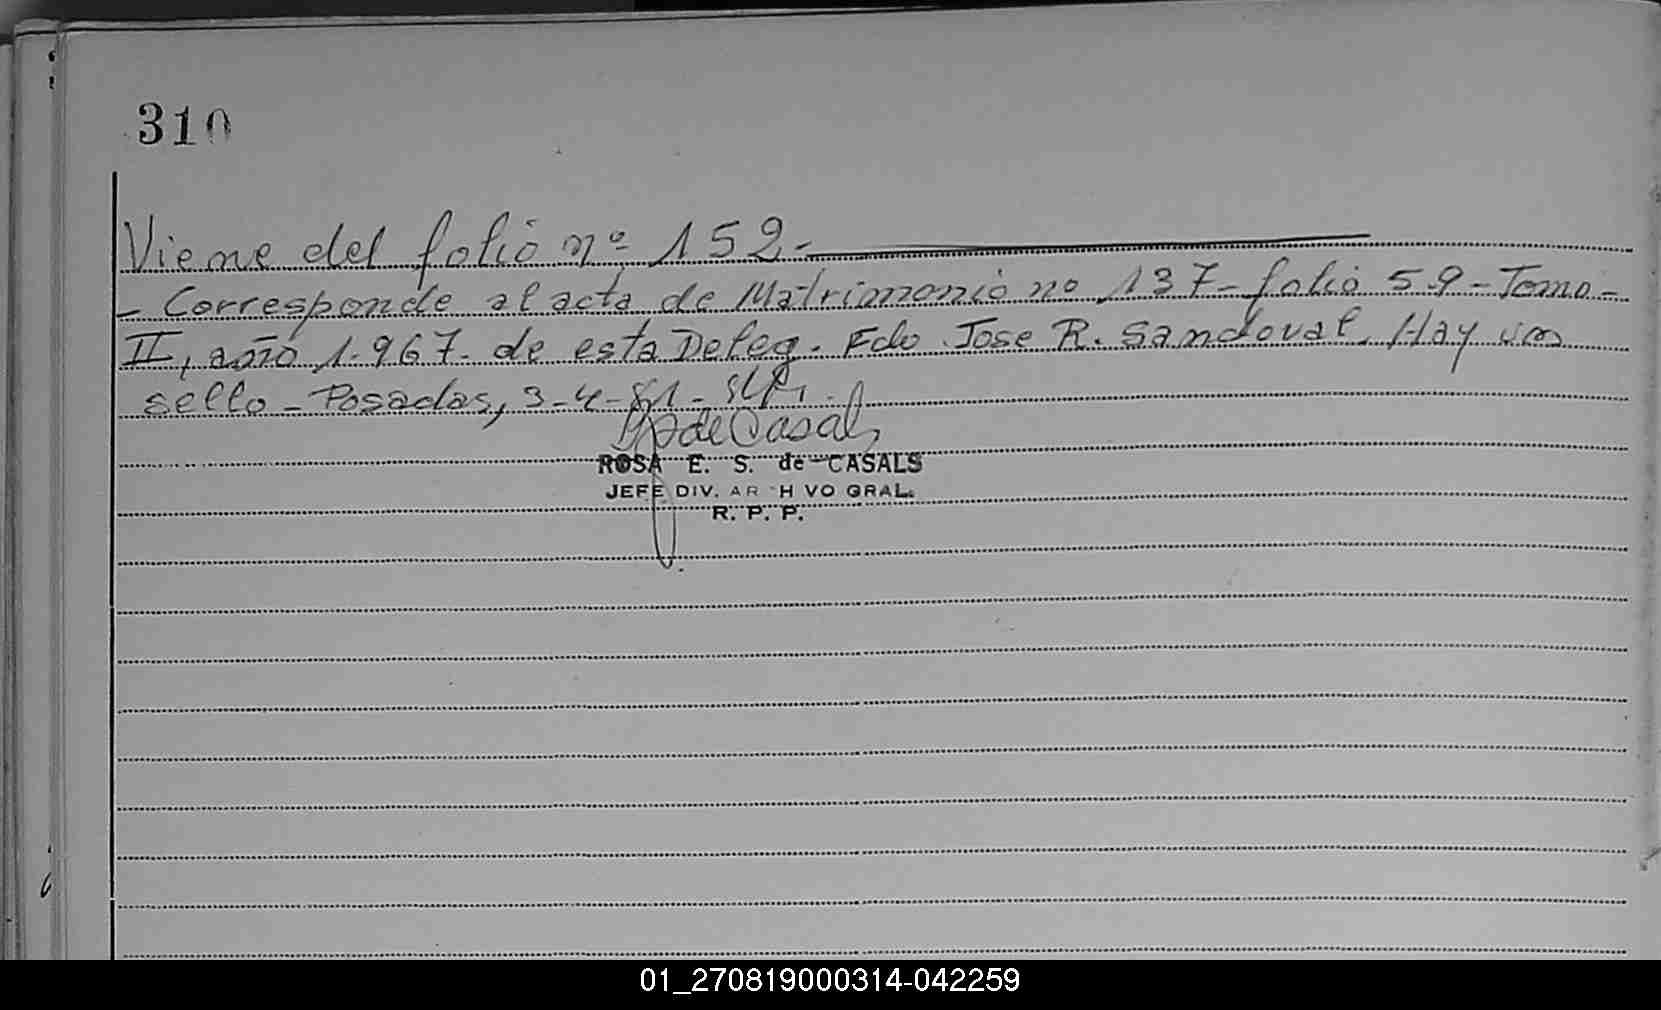 310
Viene del folio nº 152.-
- Corresponde al acta de Matrimonio nº 137- folio 59- Tomo-
II, año 1.967- de esta Deleg. Fdo Jose R. Sandoval. Hay un
sello - Posadas, 3-4-81-
de Casals
ROSA E. S. de CASALS
JEFE DIV. AR HVO GRAL.
R. P. P.
01_270819000314-042259